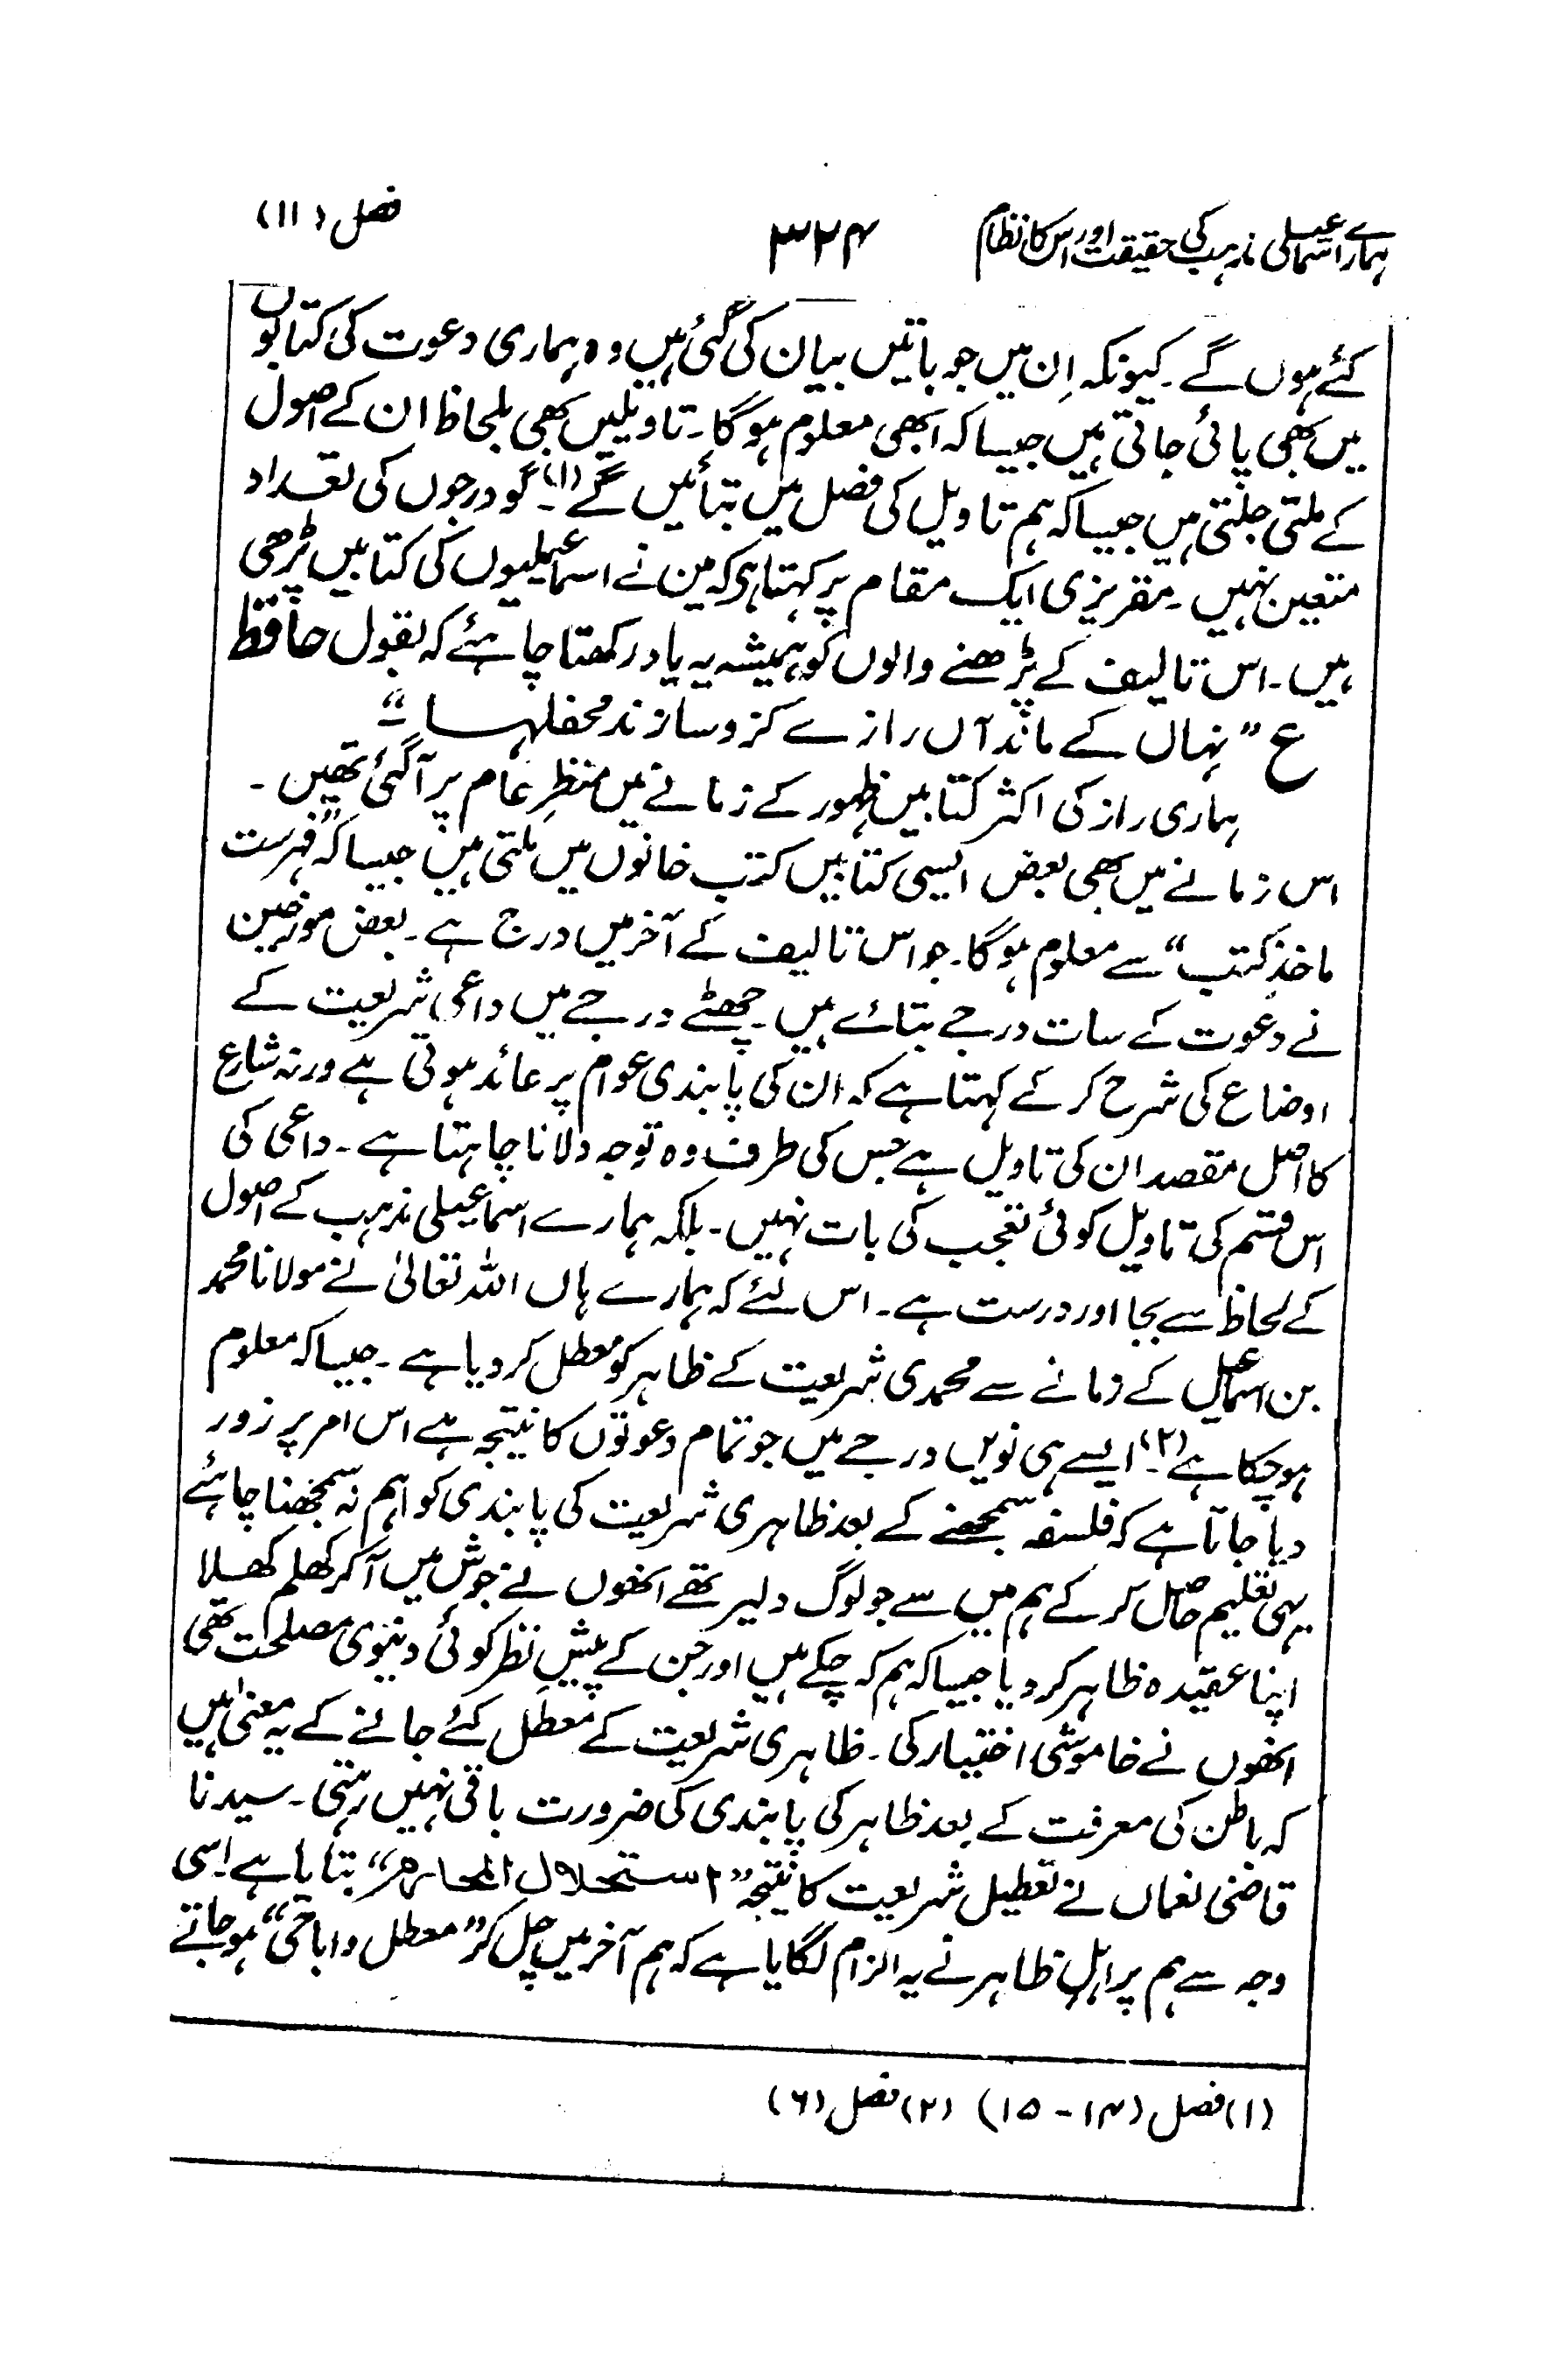 ہمارے اسماعیلی مذہب کی حقیقت اور اس کا نظام ۳۲۴ فصل (۱۱)
کئے ہوں گے۔ کیونکہ اِن میں جو باتیں بیان کی گئی ہیں وہ ہماری دعوت کی کتابوں
میں بھی پائی جاتی ہیں جیسا کہ ابھی معلوم ہوگا۔ تاویلیں بھی بلحاظ ان کے اصول
کے ملتی جلتی ہیں جیسا کہ ہم تاویل کی فصل میں بتائیں گے (۱)۔ گو درجوں کی تعداد
متعین نہیں۔ مقریزی ایک مقام پر کہتا ہو کہ مین نے اسماعیلیوں کی کتابیں پڑھی
ہیں۔ اس تالیف کے پڑھنے والوں کو ہمیشہ یہ یاد رکھنا چاہئے کہ بقول حافظ
ع ”نہاں کے ماند آں رازے کزو سازند محفلہا“
ہماری راز کی اکثر کتابیں ظہور کے زمانے میں منظرِ عام پر آگئی تھیں۔
اس زمانے میں بھی بعض ایسی کتابیں کتب خانوں میں ملتی ہیں جیسا کہ ”فہرست
ماخذِ کتب“ سے معلوم ہوگا۔ جو اس تالیف کے آخر میں درج ہے۔ بعض مورخین
نے دعوت کے سات درجے بتائے ہیں۔ چھٹے درجے میں داعی شریعت کے
اوضاع کی شرح کر کے کہتا ہے کہ ان کی پابندی عوام پر عائد ہوتی ہے ورنہ شارع
کا اصل مقصد ان کی تاویل ہے جس کی طرف وہ توجہ دلانا چاہتا ہے۔ داعی کی
اس قسم کی تاویل کوئی تعجب کی بات نہیں۔ بلکہ ہمارے اسماعیلی مذہب کے اصول
کے لحاظ سے بجا اور درست ہے۔ اس لئے کہ ہمارے ہاں اللہ تعالیٰ نے مولانا محمد
بن اسماعیل کے زمانے سے محمدی شریعت کے ظاہر کو معطل کر دیا ہے۔ جیسا کہ معلوم
ہوچکا ہے (۲)۔ ایسے ہی نویں درجے میں جو تمام دعوتوں کا نتیجہ ہے اس امر پر زور
دیا جاتا ہے کہ فلسفہ سمجھنے کے بعد ظاہری شریعت کی پابندی کو اہم نہ سمجھنا چاہئے
یہی تعلیم حاصل کر کے ہم میں سے جو لوگ دلیر تھے انھوں نے جوش میں آکر کھلم کھلا
اپنا عقیدہ ظاہر کر دیا جیسا کہ ہم کہ چکے ہیں اور جن کے پیشِ نظر کوئی دنیوی مصلحت تھی
انھوں نے خاموشی اختیار کی۔ ظاہری شریعت کے معطل کئے جانے کے یہ معنیٰ ہیں
کہ باطن کی معرفت کے بعد ظاہر کی پابندی کی ضرورت باقی نہیں رہتی۔ سیدنا
قاضی نعمان نے تعطیل شریعت کا نتیجہ ”استحلال المحارم“ بتایا ہے اسی
وجہ سے ہم پر اہلِ ظاہر نے یہ الزام لگایا ہے کہ ہم آخر میں چل کر ”معطل و اباحی“ ہو جاتے
(۱) فصل (۱۴ - ۱۵) (۲) فصل (۶)